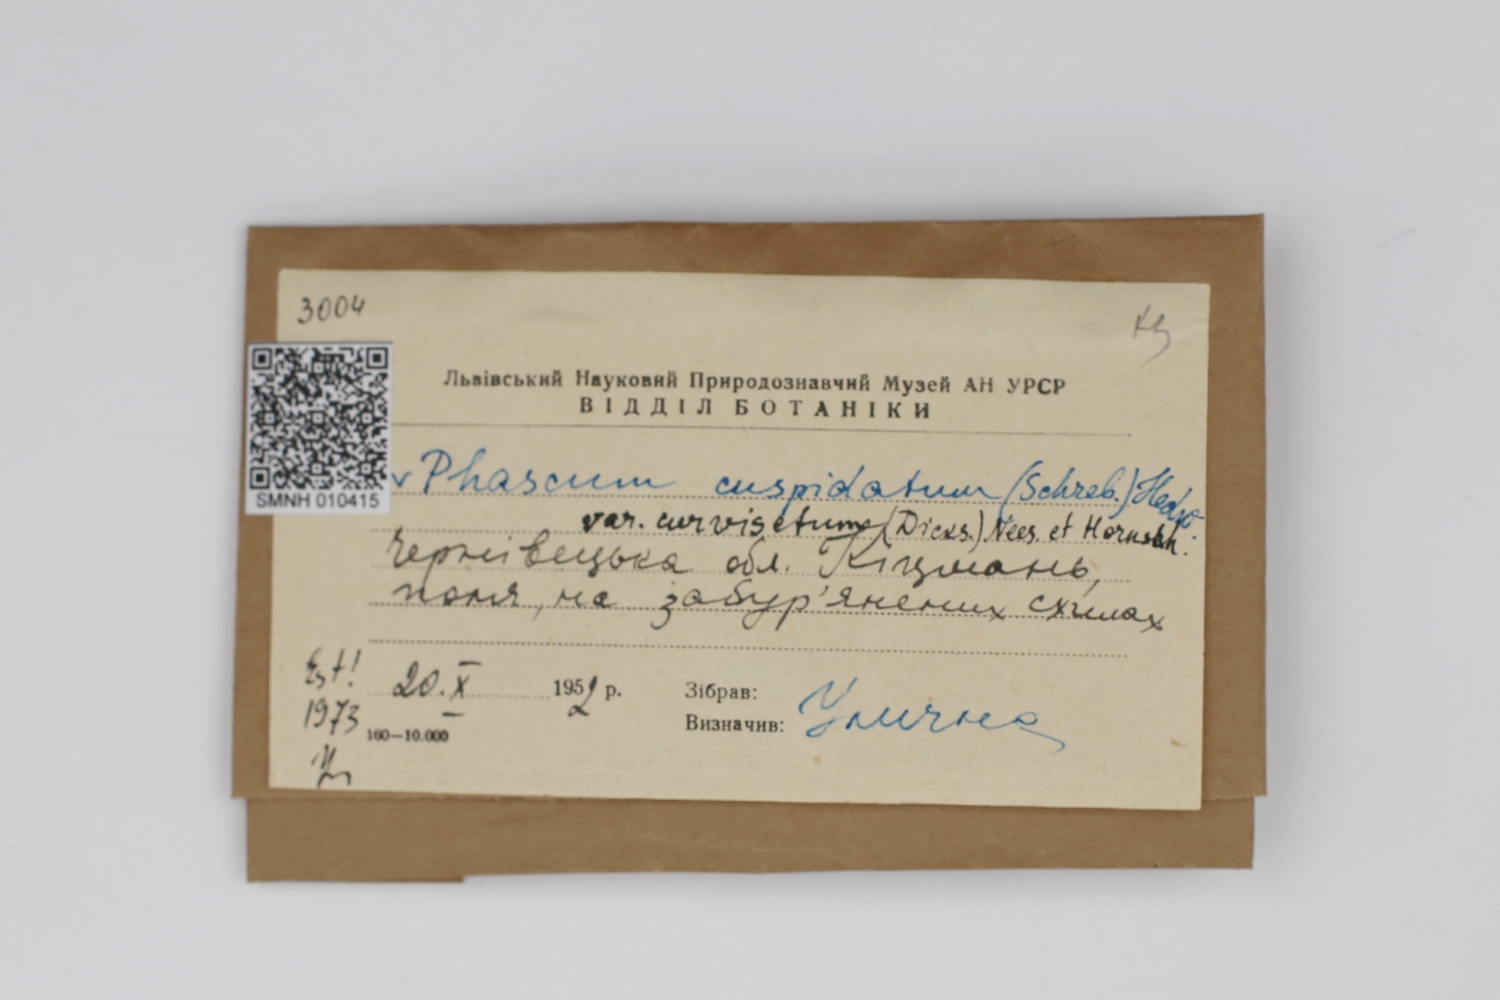 3004
Львівський Науковий Природознавчий Музей АН УРСР
ВІДДІЛ БОТАНІКИ
SMNH 010415
v Phascum cuspidatum (Schreb.) Hedw.
var. curvisetum (Dicks.) Nees. et Hornsch.
Чернівецька обл. Кіцмань,
поля, на забур'янених схилах
Est! 20.X 1952 р. Зібрав:
1973 Визначив: Улична
160—10.000